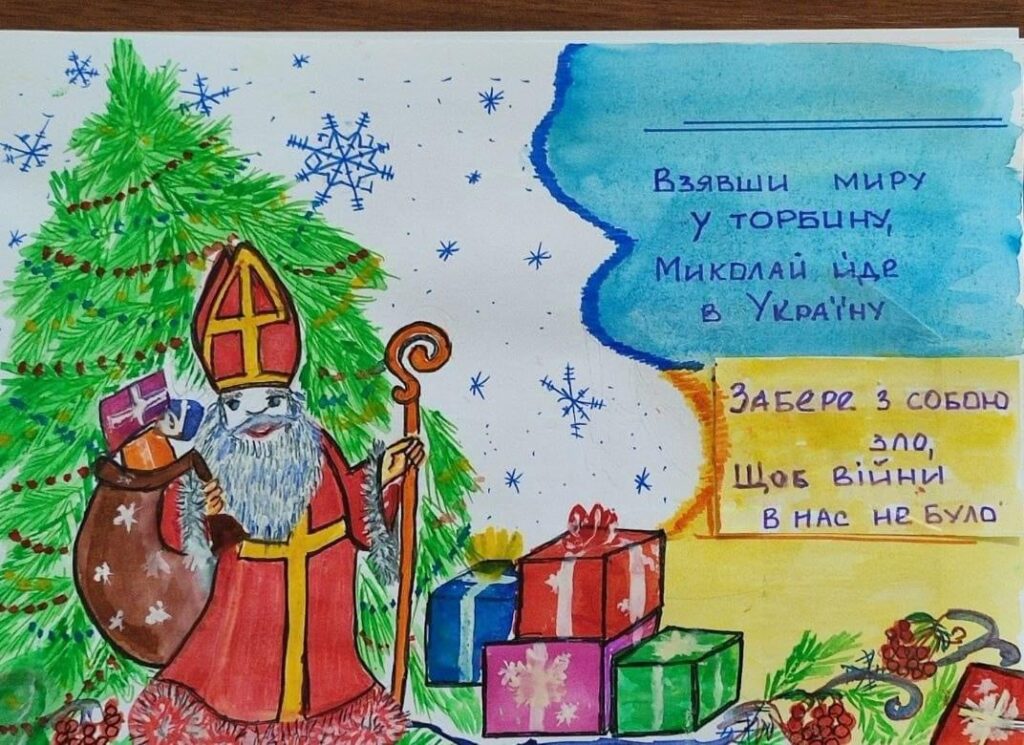 Взявши миру
у торбину,
Миколай йде
в Україну
Забере з собою
зло,
Щоб війни
в нас не було